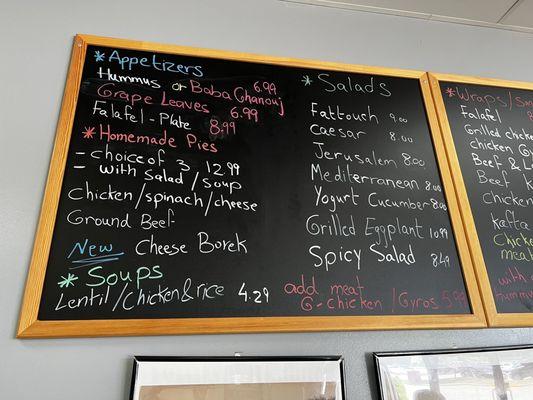 *Appetizers
Hummus or Baba Ghanouj 6.99
Grape Leaves 6.99
Falafel - Plate 8.99
*Homemade Pies
- choice of 3 12.99
- with Salad/soup
Chicken/spinach/cheese
Ground Beef
New Cheese Borek
*Soups
Lentil/Chicken&rice 4.29
*Salads
Fattouch 9.00
Caesar 8.00
Jerusalem 8.00
Mediterranean 8.00
Yogurt Cucumber 8.00
Grilled Eggplant 10.99
Spicy Salad 8.49
add meat
G-chicken /Gyros 5.99
*Wraps/
Falafel 8
Grilled chicken
chicken
Beef & L
Beef K
Chicken
Kafta
Chicken
meat
with
Hummus